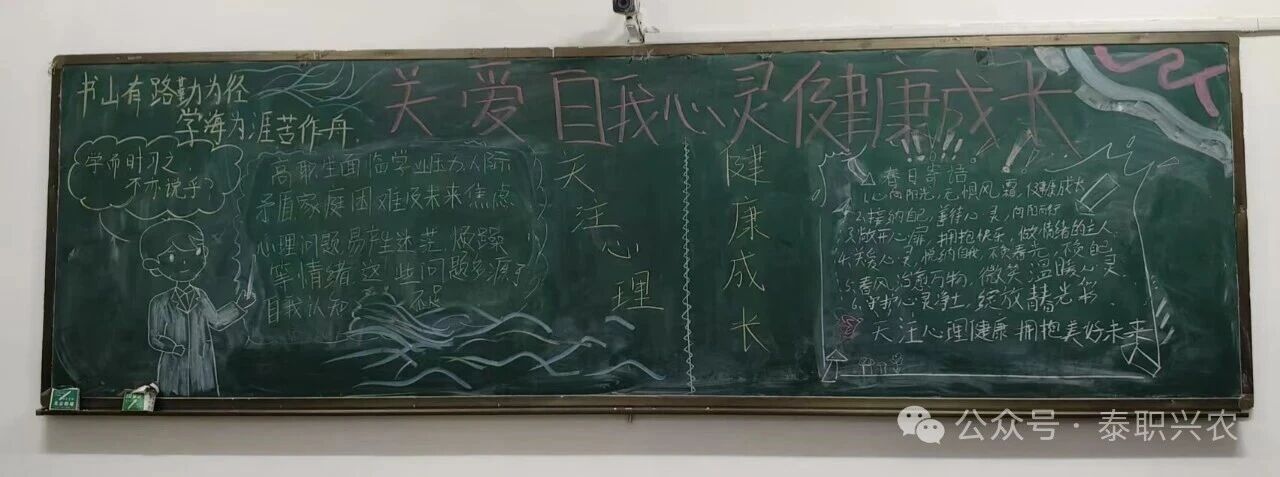 关爱自我心灵健康成长
书山有路勤为径
学海为涯苦作舟
学而时习之,
不亦说乎?
高职生面临学业压力人际
矛盾家庭困难及未来焦点
心理问题易产生迷茫 烦躁
等情绪这些问题多源于
自我认知 不足
关注心理
健康成长
春日寄语
1.心向阳光,无惧风霜,健康成长
2.接纳自己,善待心灵,向阳而行
3.敞开心扉,拥抱快乐,做情绪的主人
4.关爱心灵,悦纳自我,不负春光,不负己
5.春风治愈万物,微笑温暖心灵
6.守护心灵净土,绽放青春光彩
关注心理健康 拥抱美好未来
公众号·泰职兴农